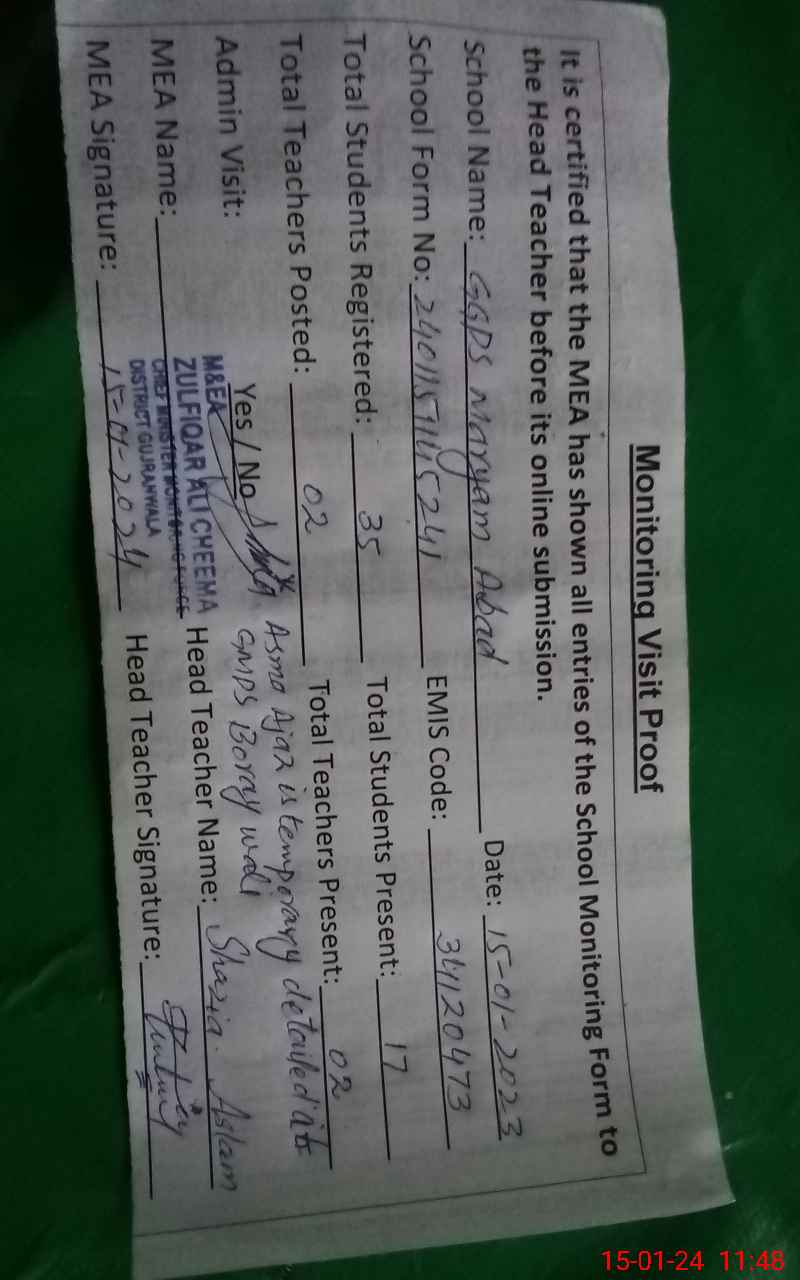 Monitoring Visit Proof
It is certified that the MEA has shown all entries of the School Monitoring Form to
the Head Teacher before its online submission.
School Name: GGPS Maryam Abad Date: 15-01-2023
School Form No: EMIS Code: 34120473
Total Students Registered: 35 Total Students Present: 17
Total Teachers Posted: 02 Total Teachers Present: 02
* Asma Ajaz is temporary detailed at
Admin Visit: Yes / No GMPS Boray wali
M&EA
MEA Name: ZULFIQAR ALI CHEEMA Head Teacher Name: Shazia Aslam
CHIEF MINISTER MONITORING FORCE
DISTRICT GUJRANWALA
MEA Signature: 15-01-2024 Head Teacher Signature:
15-01-24 11:48